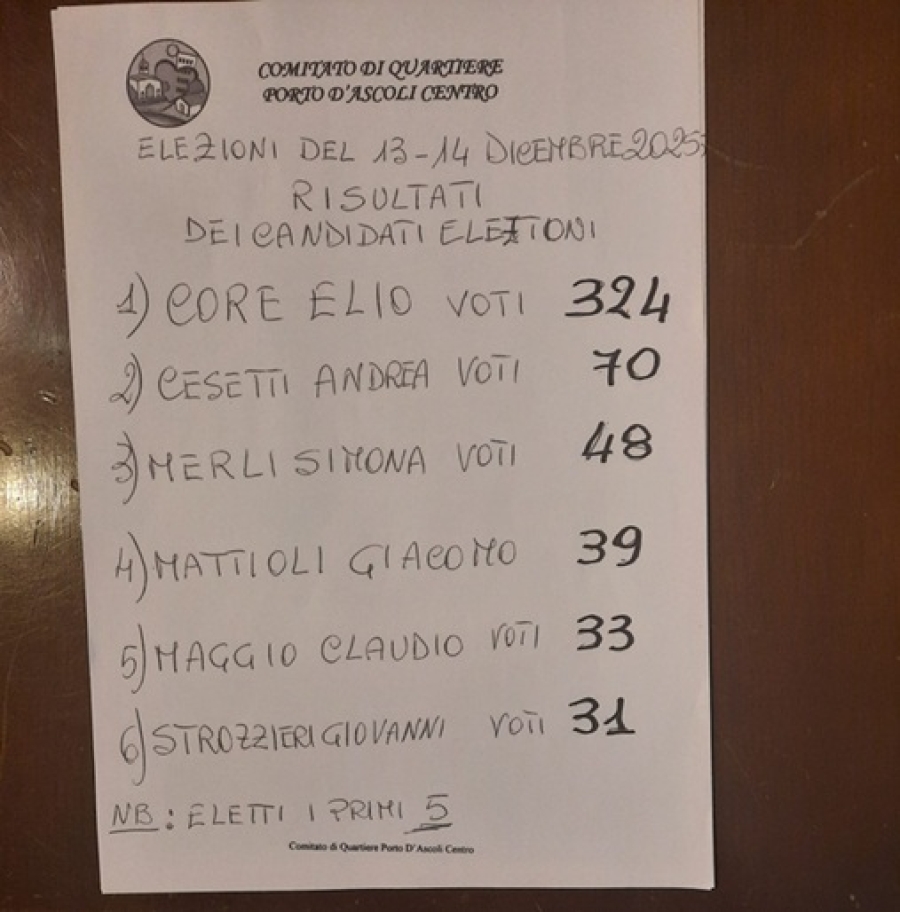 COMITATO DI QUARTIERE
PORTO D'ASCOLI CENTRO
ELEZIONI DEL 13-14 DICEMBRE 2025
RISULTATI
DEI CANDIDATI ELETTIONI
1) CORE ELIO VOTI 324
2) CESETTI ANDREA VOTI 70
3) MERLI SIMONA VOTI 48
4) MATTIOLI GIACOMO 39
5) MAGGIO CLAUDIO VOTI 33
6) STROZZIERI GIOVANNI VOTI 31
NB: ELETTI I PRIMI 5
Comitato di Quartiere Porto D'Ascoli Centro